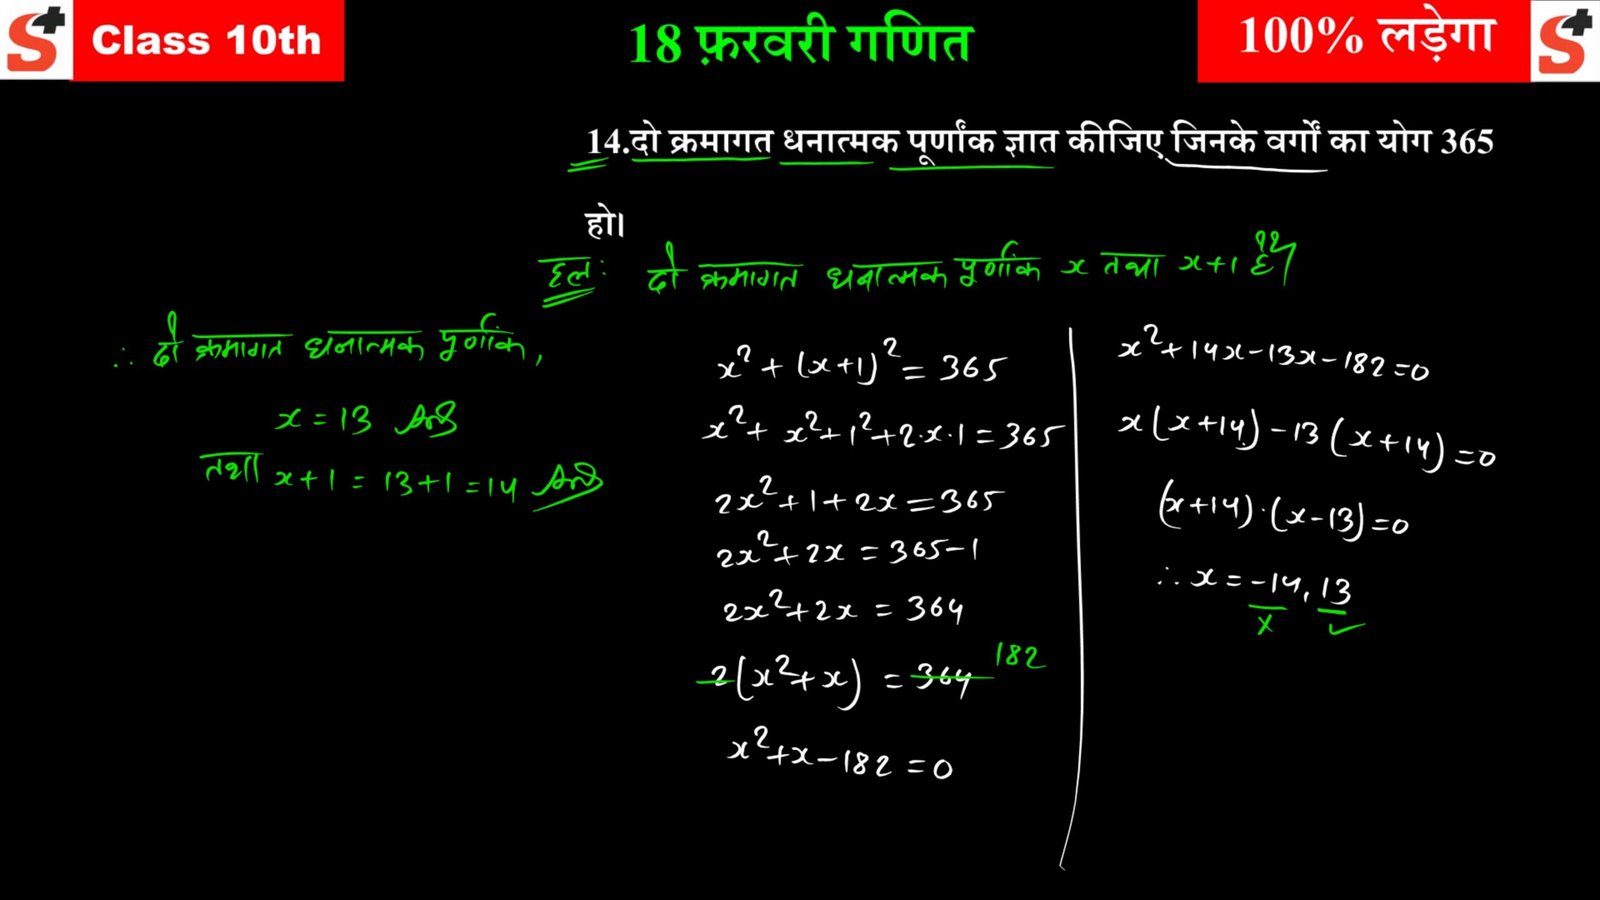 S+ Class 10th
18 फ़रवरी गणित
100% लड़ेगा S+
14.दो क्रमागत धनात्मक पूर्णांक ज्ञात कीजिए जिनके वर्गों का योग 365
हो।
हल: दो क्रमागत धनात्मक पूर्णांक x तथा x+1 हैं
x²+(x+1)²=365
x²+x²+1²+2·x·1=365
2x²+1+2x=365
2x²+2x=365-1
2x²+2x=364
2(x²+x)=364 182
x²+x-182=0
x²+14x-13x-182=0
x(x+14)-13(x+14)=0
(x+14)·(x-13)=0
∴ x=-14, 13
x ✓
∴ दो क्रमागत धनात्मक पूर्णांक,
x=13 Ans
तथा x+1=13+1=14 Ans